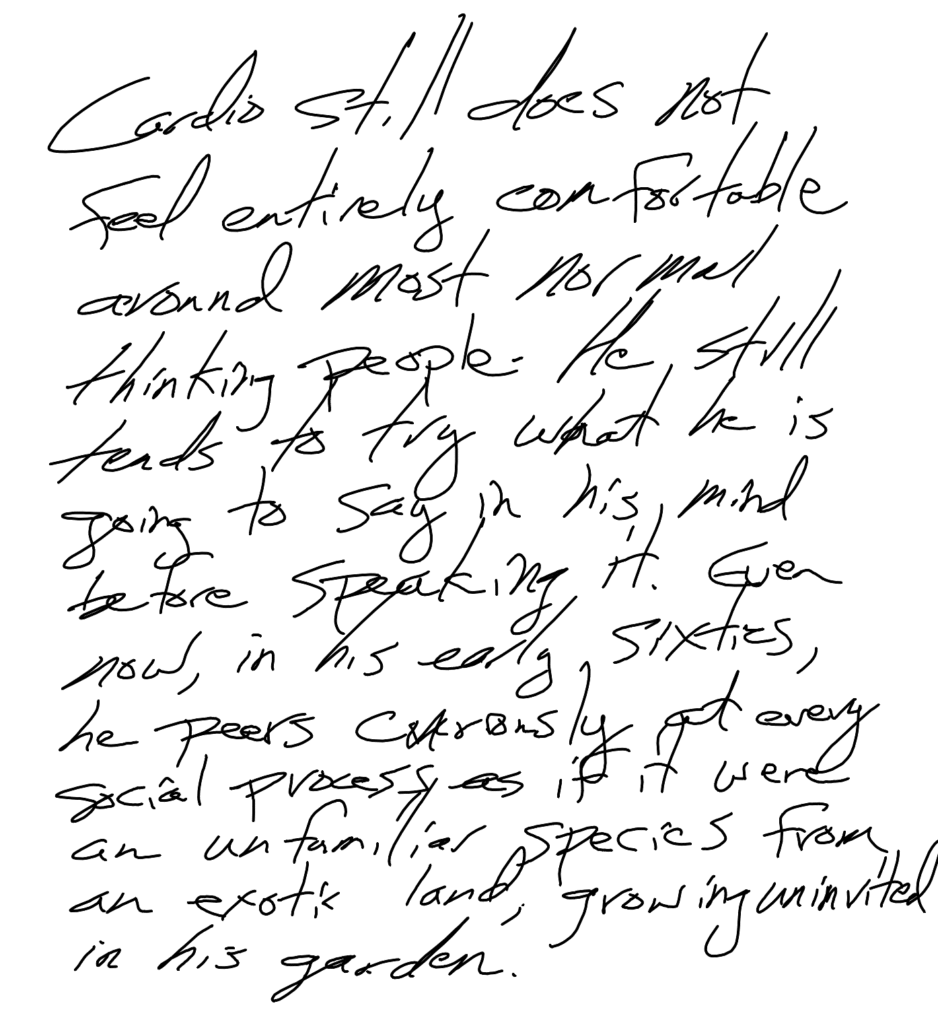 Cardio still does not
feel entirely comfortable
around most normal
thinking people. He still
tends to try what he is
going to say in his mind
before speaking it. Even
now, in his early sixties,
he peers curiously at every
social process, as if it were
an unfamiliar species from
an exotic land, growing uninvited
in his garden.